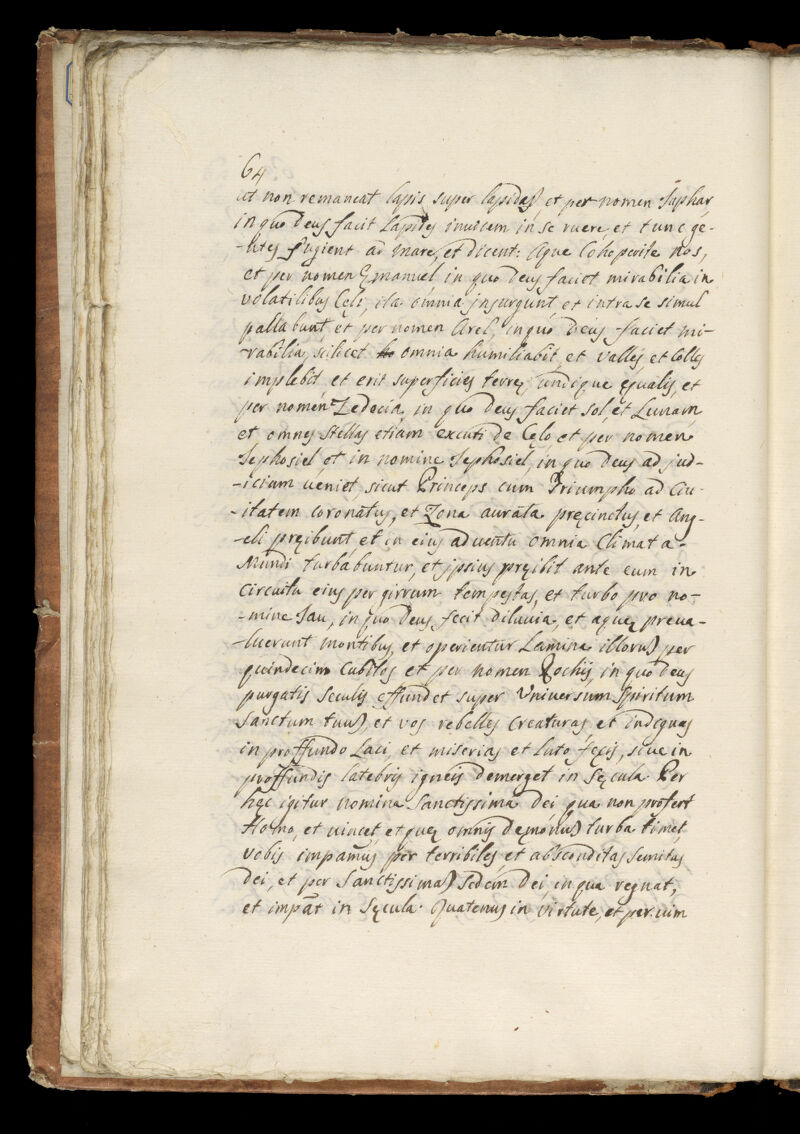 64
ut non remaneat lapis super lapidaȝ et per nomen Saphar
in quo Deus facit Lapides inuicem in se ruere et tunc ge-
-ntes fugient ad mare, et dicent: Aque Cohoperite nos,
et per nomen Emanuel in quo Deus faciet mirabilia in
volatilibus Cęli, ita omnia insurgunt et intra se simul
pallabunt, et per nomen Arel, in quo Deus faciet mi-
-rabilia, scilicet omnia humiliabit, et valles, et Colles
implebit, et erit superficies terrę undique equalis, et
per nomen Zedocia, in quo Deus faciet Sol, et Lunam
et omnes stellas etiam excuti de Cęlo et per nomen
Sephosiel et in nomine Sephosiel, in quo Deus ad jud-
-icium veniet, sicut Princeps cum Triumpho ad Ciu-
-itatem coronatus, et Zona aurata pręcinctus, et Ang-
-eli pręibunt et in eius aduentu omnia Climata
Mundi turbabuntur, et ipsius pręibit ante eum in
circuitu eius per girrum tempestas, et turbo pro no-
-mine Iau, in quo Deus fecit diluuia, et aquę preua-
-luerunt montibus, et operientur Lamina illoruȝ per
quindecim Cubitos et per nomen Rochij in quo Deus
purgatis seculis effundet super Vniuersum Spiritum
Sanctum tuuȝ, et vos rebelles Creaturas et Indeguas
in proffundo Laci, et miserias et Luto fęcis, siue in
proffundis latebris igneis demerget in Sęcula. Per
hęc igitur nomina Sanctissima Dei qua non profert
Homo, et vincet, et quę omnis Dęmonuȝ turba timet,
vobis impamus per terribiles, et absconditas Semitas
Dei, et per Sanctissimaȝ Sedem Dei in qua regnat,
et impāt in Sęcula. Quatenus in virtute, et per uim